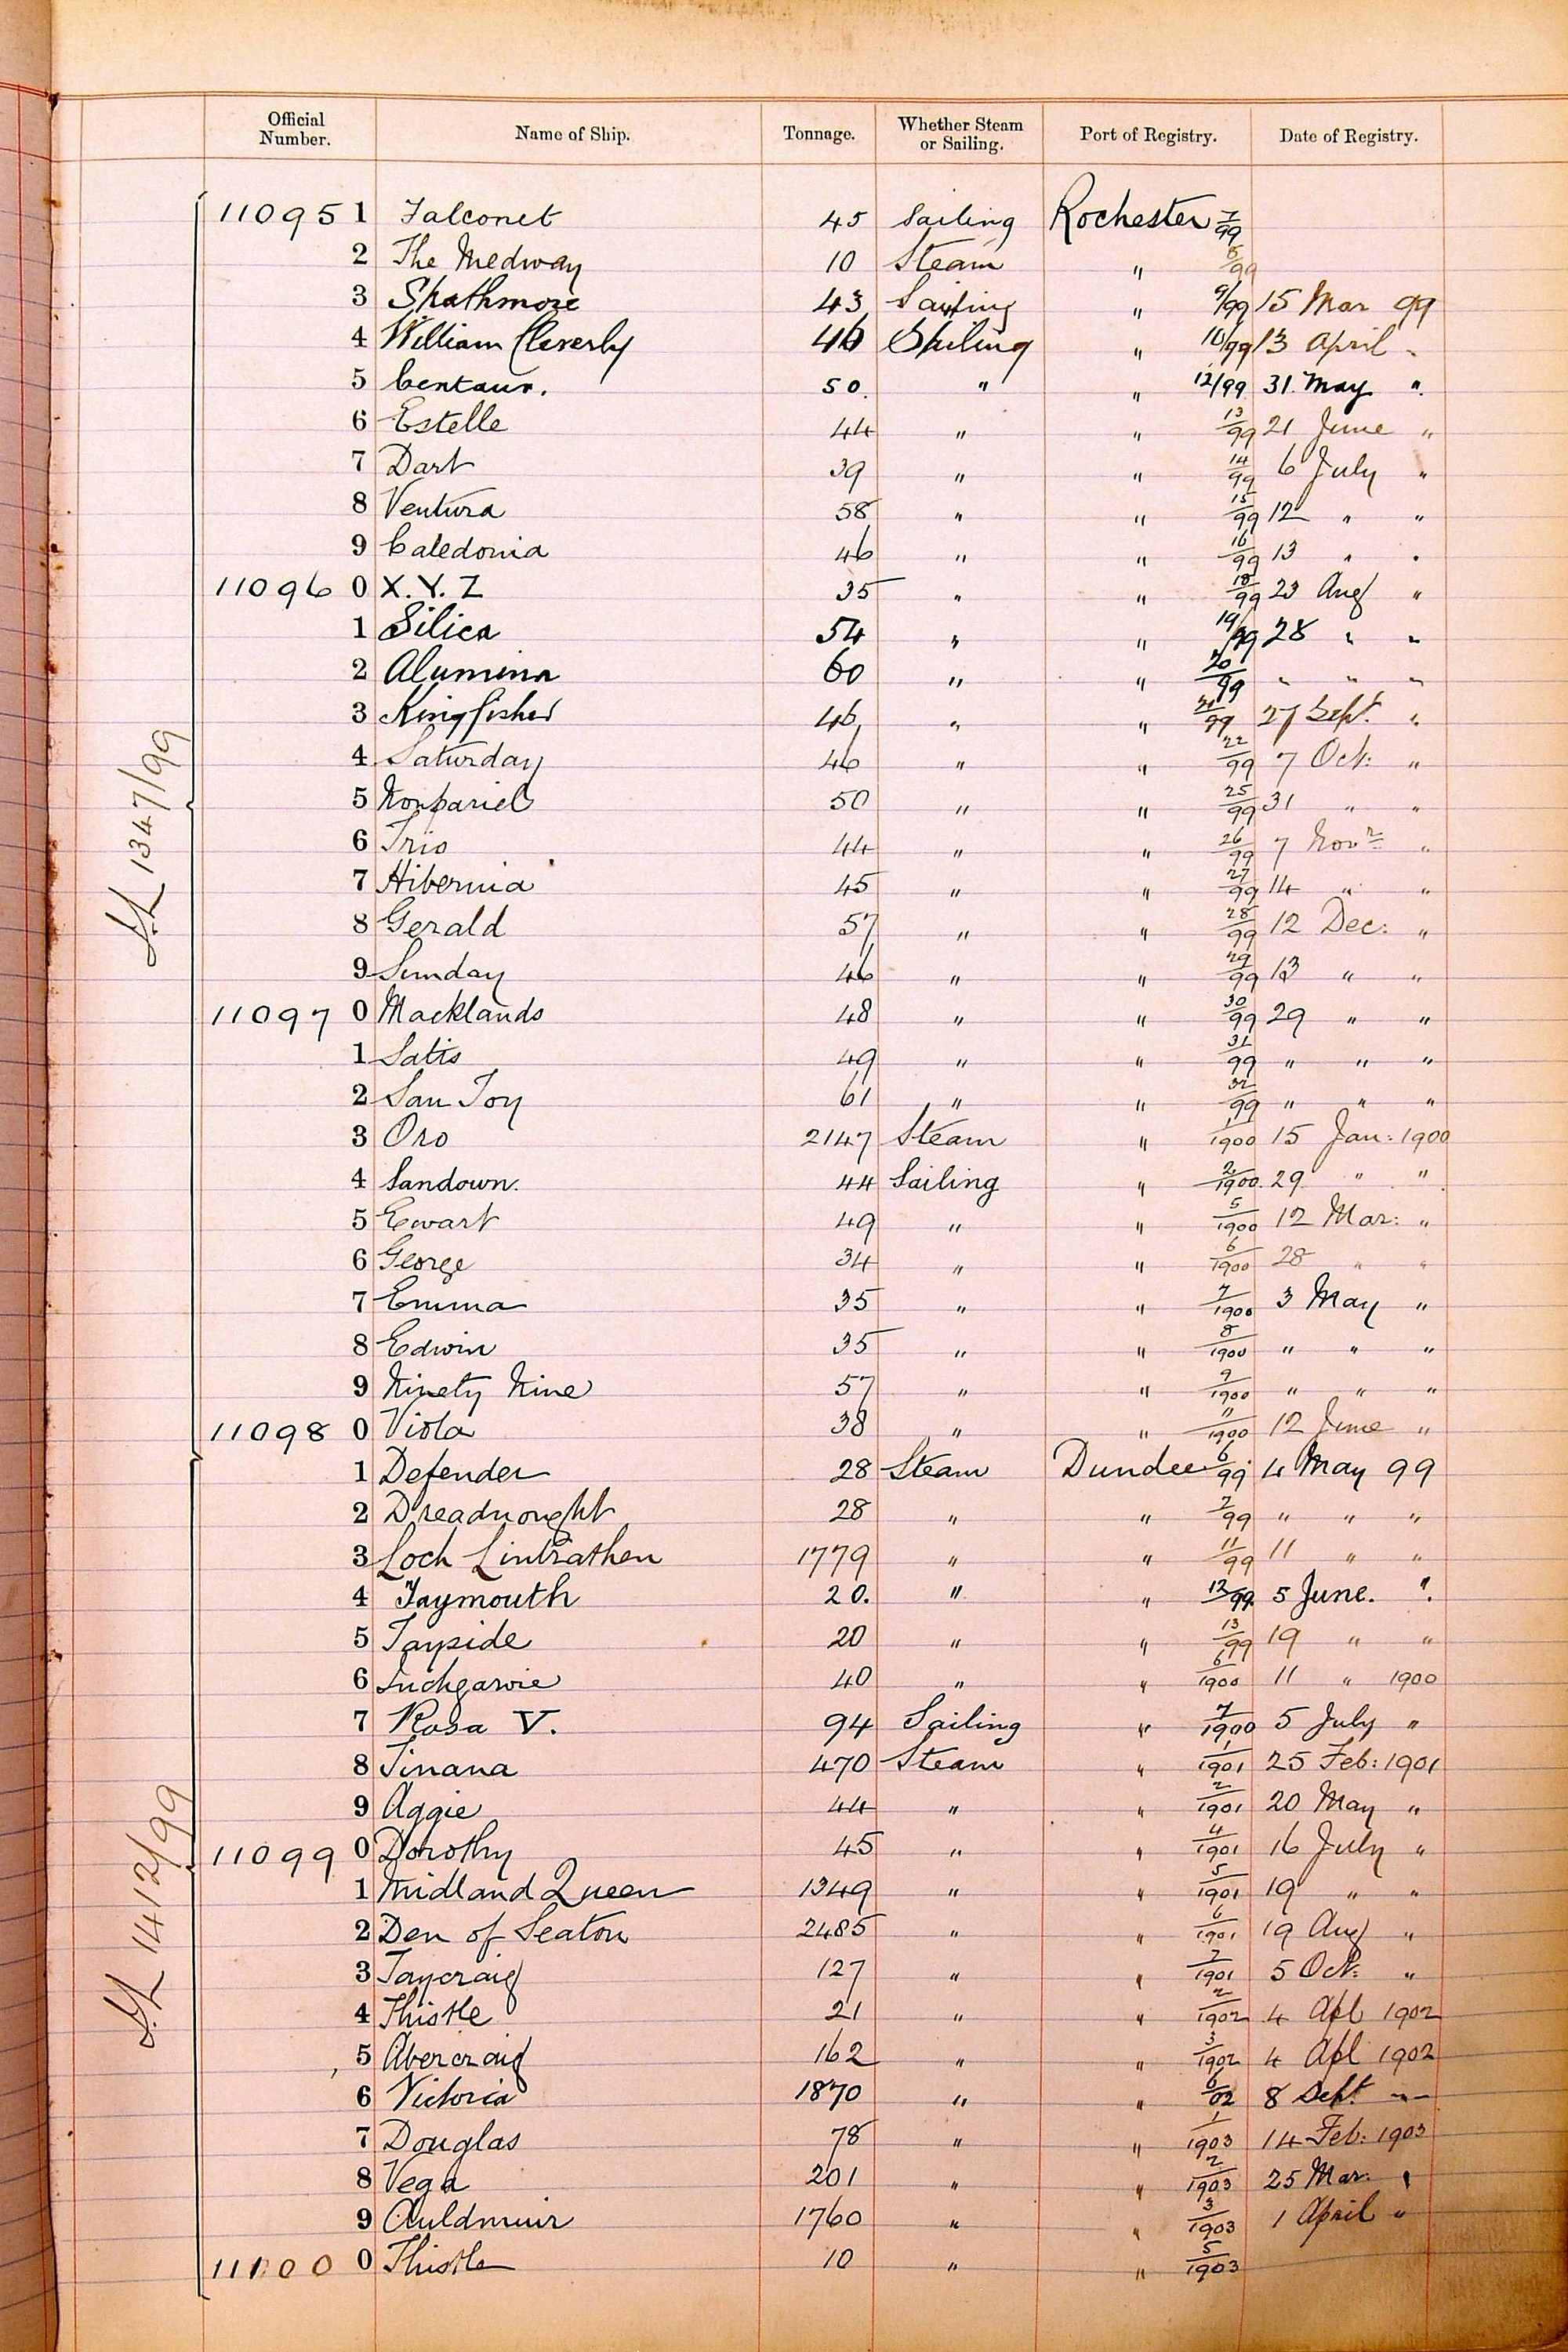 Official Number. Name of Ship. Tonnage. Whether Steam or Sailing. Port of Registry. Date of Registry.
11095 1 Falconet 45 Sailing Rochester 7/99
2 The Medway 10 Steam " 8/99
3 Strathmore 43 Sailing " 9/99 15 Mar 99
4 William Cleverly 46 Sailing " 10/99 13 April "
5 Centaur. 50. " " 12/99 31 May "
6 Estelle 44 " " 13/99 21 June "
7 Dart 39 " " 14/99 6 July "
8 Ventura 58 " " 15/99 12 " "
9 Caledonia 46 " " 16/99 13 " "
11096 0 X.Y.Z 35 " " 18/99 23 Aug "
1 Silica 54 " " 19/99 28 " "
2 Alumina 60 " " 20/99 " " "
3 Kingfisher 46 " " 21/99 27 Sept. "
4 Saturday 46 " " 22/99 7 Oct: "
5 Nonpariel 50 " " 25/99 31 " "
6 Trio 44 " " 26/99 7 Novr "
7 Hibernia 45 " " 27/99 14 " "
8 Gerald 57 " " 28/99 12 Dec: "
9 Sunday 46 " " 29/99 13 " "
11097 0 Macklands 48 " " 30/99 29 " "
1 Satis 49 " " 31/99 " " "
2 San Toy 61 " " 32/99 " " "
3 Oro 2147 Steam " 1/1900 15 Jan: 1900
4 Sandown. 44 Sailing " 2/1900. 29 " "
5 Ewart 49 " " 5/1900 12 Mar: "
6 George 34 " " 6/1900 28 " "
7 Emma 35 " " 7/1900 3 May "
8 Edwin 35 " " 8/1900 " " "
9 Ninety Nine 57 " " 9/1900 " " "
11098 0 Viola 38 " " 11/1900 12 June "
1 Defender 28 Steam Dundee 6/99 4 May 99
2 Dreadnought 28 " " 7/99 " " "
3 Loch Lintrathen 1779 " " 11/99 11 " "
4 Taymouth 20. " " 12/99. 5 June. "
5 Tayside 20 " " 13/99 19 " "
6 Inchgarvie 40 " " 6/1900 11 " 1900
7 Rosa V. 94 Sailing " 7/1900 5 July "
8 Tinana 470 Steam " 1/1901 25 Feb: 1901
9 Aggie 44 " " 2/1901 20 May "
11099 0 Dorothy 45 " " 4/1901 16 July "
1 Midland Queen 1349 " " 5/1901 19 " "
2 Den of Seaton 2485 " " 6/1901 19 Aug "
3 Taycraig 127 " " 7/1901 5 Oct: "
4 Thistle 21 " " 2/1902 4 Apl 1902
5 Abercraig 162 " " 3/1902 4 Apl 1902
6 Victoria 1870 " " 6/02 8 Sept. "
7 Douglas 78 " " 1/1903 14 Feb: 1903
8 Vega 201 " " 2/1903 25 Mar: "
9 Auldmuir 1760 " " 3/1903 1 April "
11100 0 Thistle 10 " " 5/1903
1347/99
1412/99